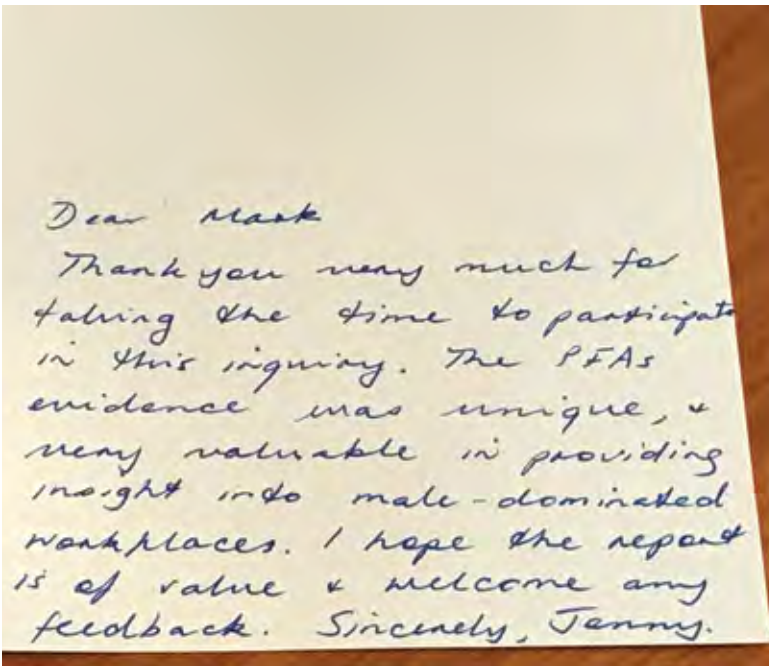 Dear Mark
Thank you very much for
taking the time to participate
in this inquiry. The PFAs
evidence was unique, &
very valuable in providing
insight into male-dominated
workplaces. I hope the report
is of value & welcome any
feedback. Sincerely, Jenny.